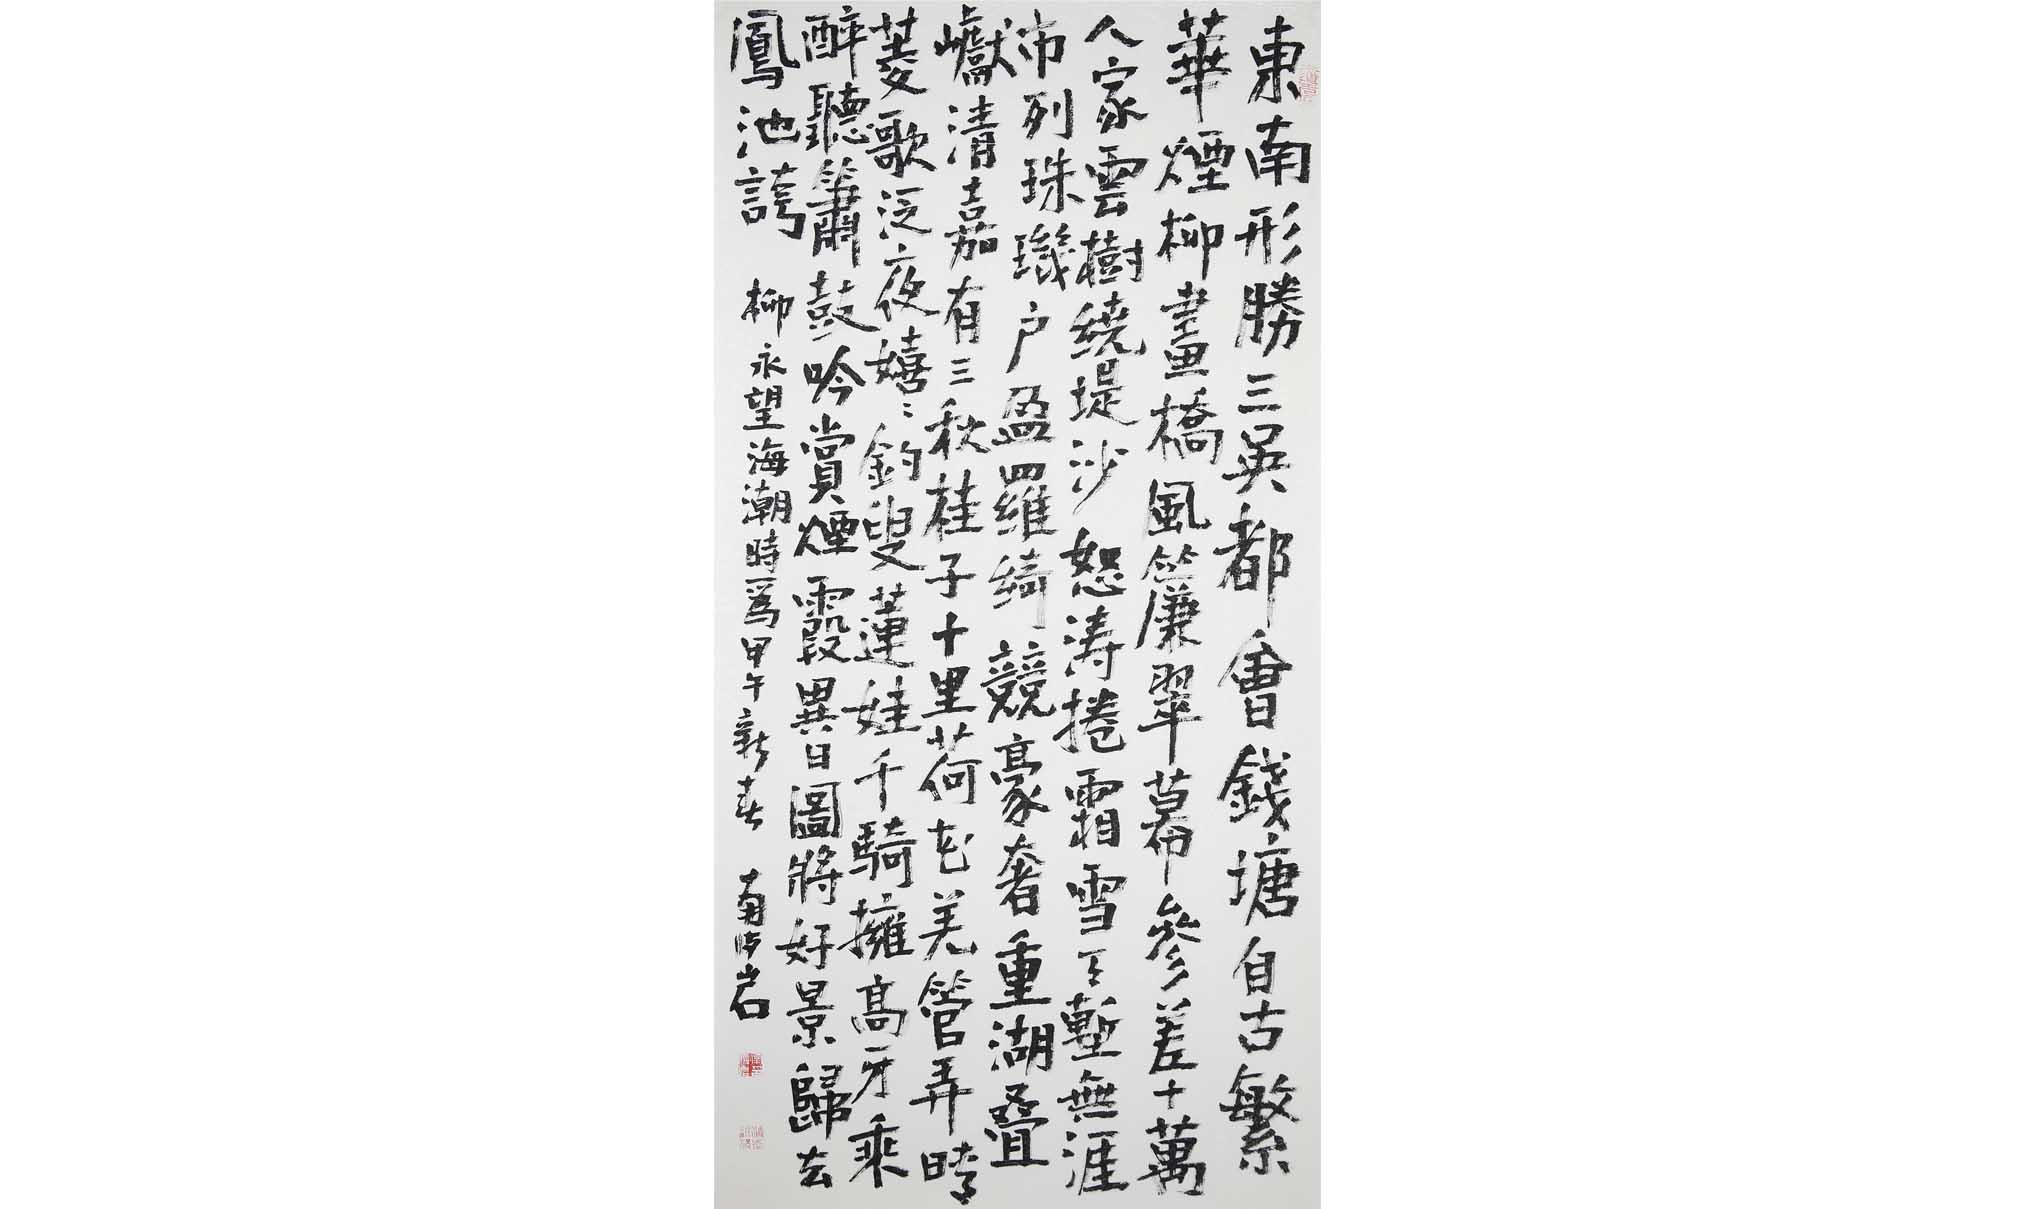 東南形勝三吳都會錢塘自古繁
華煙柳畫橋風簾翠幕參差十萬
人家雲樹繞堤沙怒濤捲霜雪天塹無涯
市列珠璣户盈羅綺競豪奢重湖疊
巘清嘉有三秋桂子十里荷花羌管弄晴
菱歌泛夜嬉〻釣叟蓮娃千騎擁高牙乘
醉聽簫鼓吟賞煙霞異日圖將好景歸去
鳳池誇
柳永望海潮時爲甲午新春 南岩